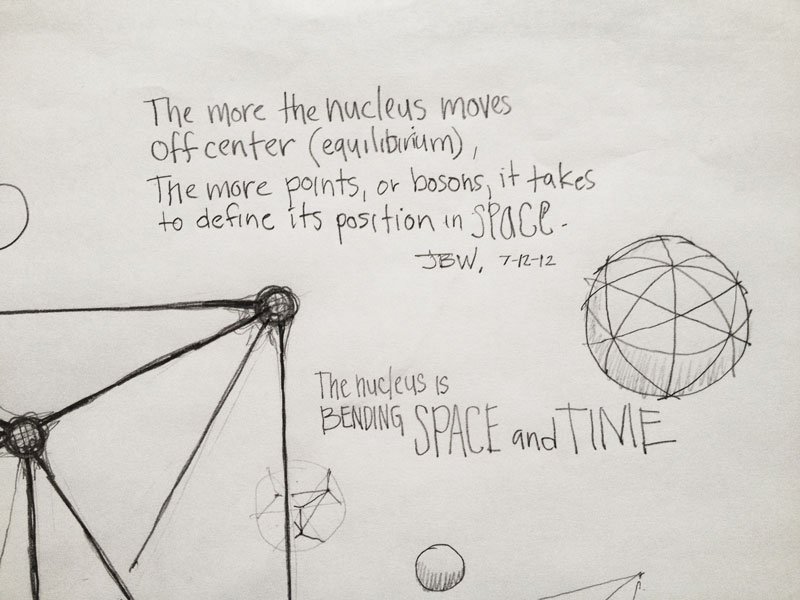 The more the nucleus moves
off center (equilibirium),
The more points, or bosons, it takes
to define its position in SPACE.
JBW, 7-12-12
The nucleus is
BENDING SPACE and TIME